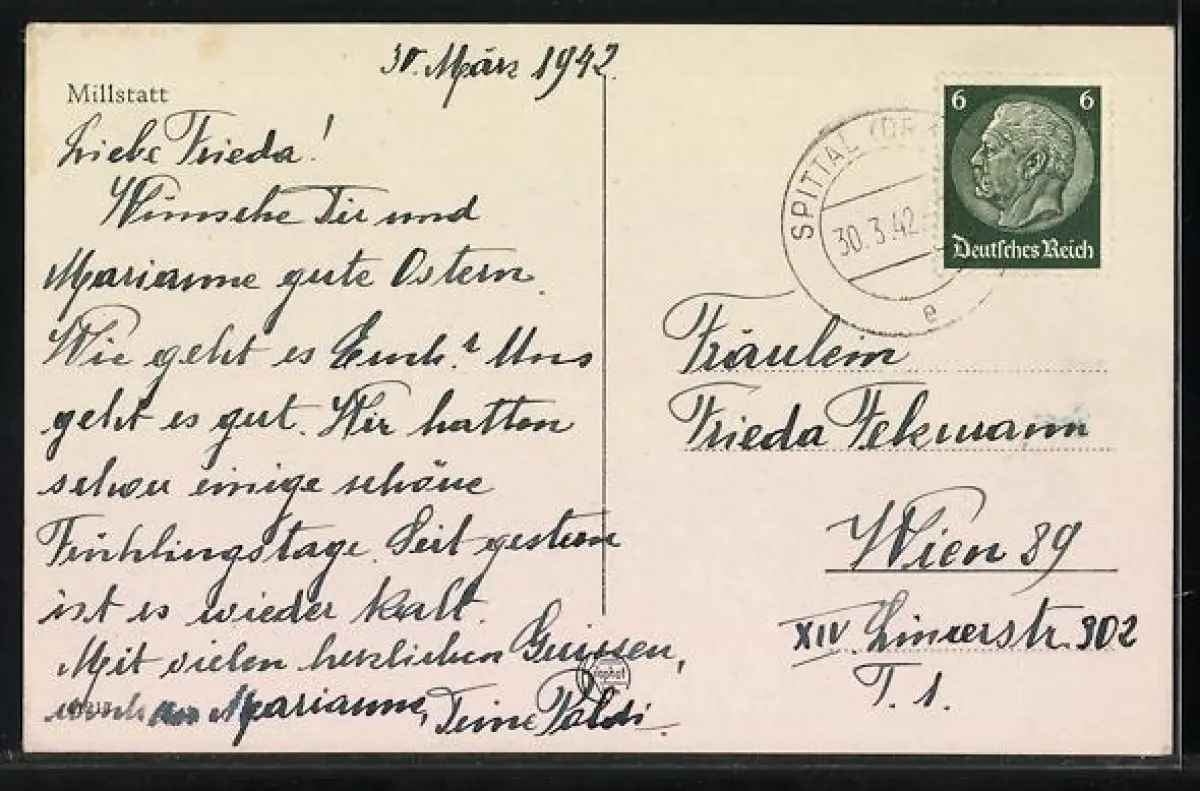 30. März 1942.
Millstatt
Liebe Frieda!
Wünsche Dir und
Marianne gute Ostern.
Wie geht es Euch? Uns
geht es gut. Wir hatten
schon einige schöne
Frühlingstage. Seit gestern
ist es wieder kalt.
Mit vielen herzlichen Grüssen,
auch an Marianne, Deine Poldi.
6 6
Deutsches Reich
SPITTAL (DR
30.3.42
e
Fräulein
Frieda Fekmann
Wien 89
XIV. Linzerstr. 302
T. 1.